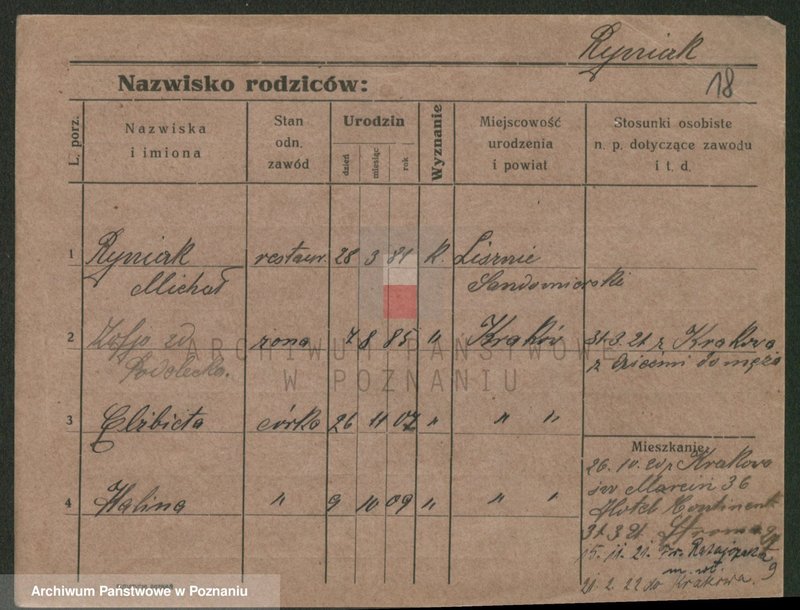 Ryniak
18
Nazwisko rodziców:
L. porz.
Nazwiska
i imiona
Stan
odn.
zawód
Urodzin
dzień
miesiąc
rok
Wyznanie
Miejscowość
urodzenia
i powiat
Stosunki osobiste
n. p. dotyczące zawodu
i t. d.
1 Ryniak restaur. 28 3 81 K.
Michał Sandomierski
2 Zofja żona 7 8 85 " Kraków 31.3.21 z Krakowa
z dziećmi do męża
ARCHIWUM PAŃSTWOWE
W POZNANIU
3 Elżbieta córka 26 11 07 " " "
Mieszkanie:
26. 10. 20 z Krakowa
św Marcin 36
4 Halina " 9 10 09 " " "
Hotel Continent
31.3 21.
15. 11. 21. Fr. Ratajczaka
9
21. 2. 22 do Krakowa.
Archiwum Państwowe w Poznaniu